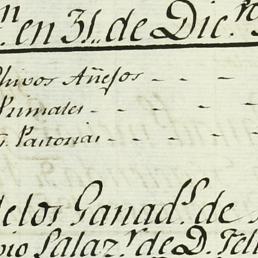 n. en 31. de Dic.re
Chivos Añejos - - -
Primales - - - -
G. Pastorias - - -
de los Ganad.s de
pio Salaz.r de D. Feli